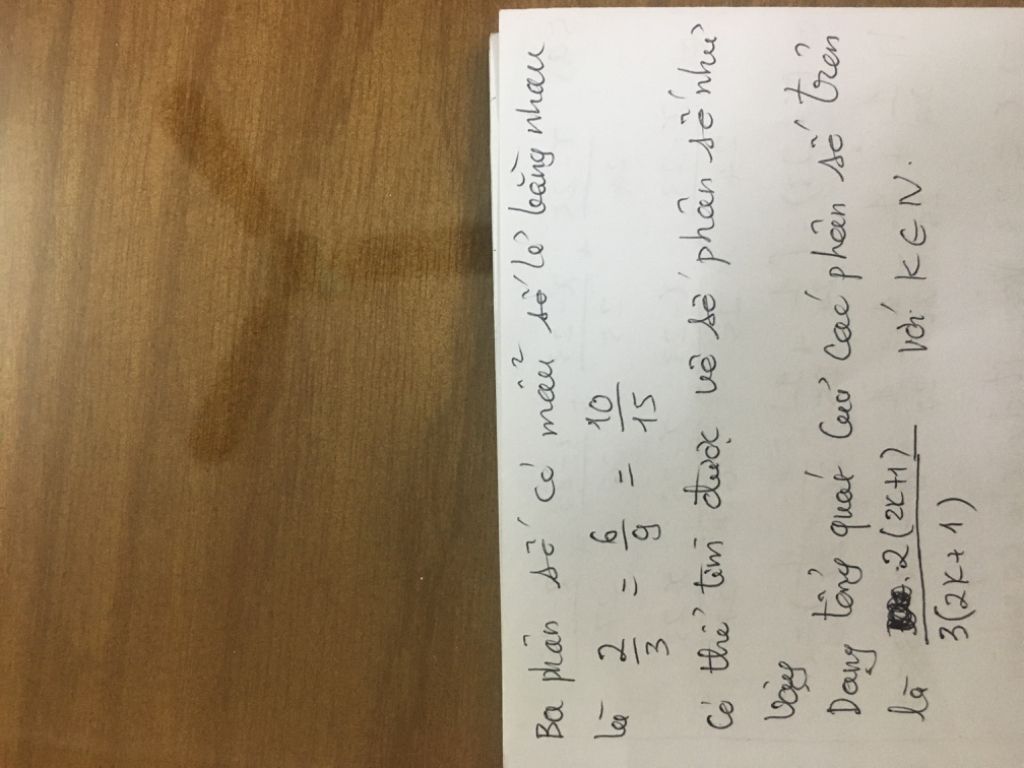 Ba phân số có mẫu số lẻ bằng nhau
là 2/3 = 6/9 = 10/15
Có thể tìm được vô số phân số như
vậy
Dạng tổng quát của các phân số trên
là 2(2k+1)/3(2k+1) với k ∈ N.